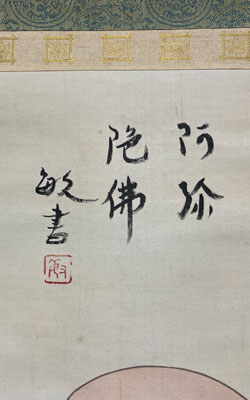 阿弥
陀佛
敏書
敏